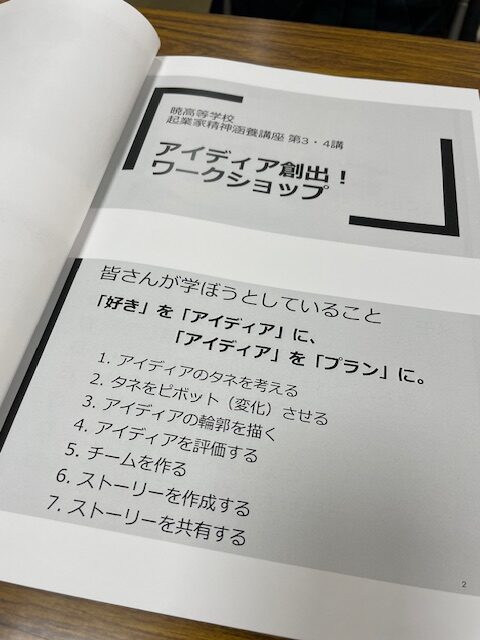 暁高等学校
起業家精神涵養講座 第3・4講
アイディア創出！
ワークショップ
皆さんが学ぼうとしていること
「好き」を「アイディア」に、
「アイディア」を「プラン」に。
1. アイディアのタネを考える
2. タネをピボット（変化）させる
3. アイディアの輪郭を描く
4. アイディアを評価する
5. チームを作る
6. ストーリーを作成する
7. ストーリーを共有する
2